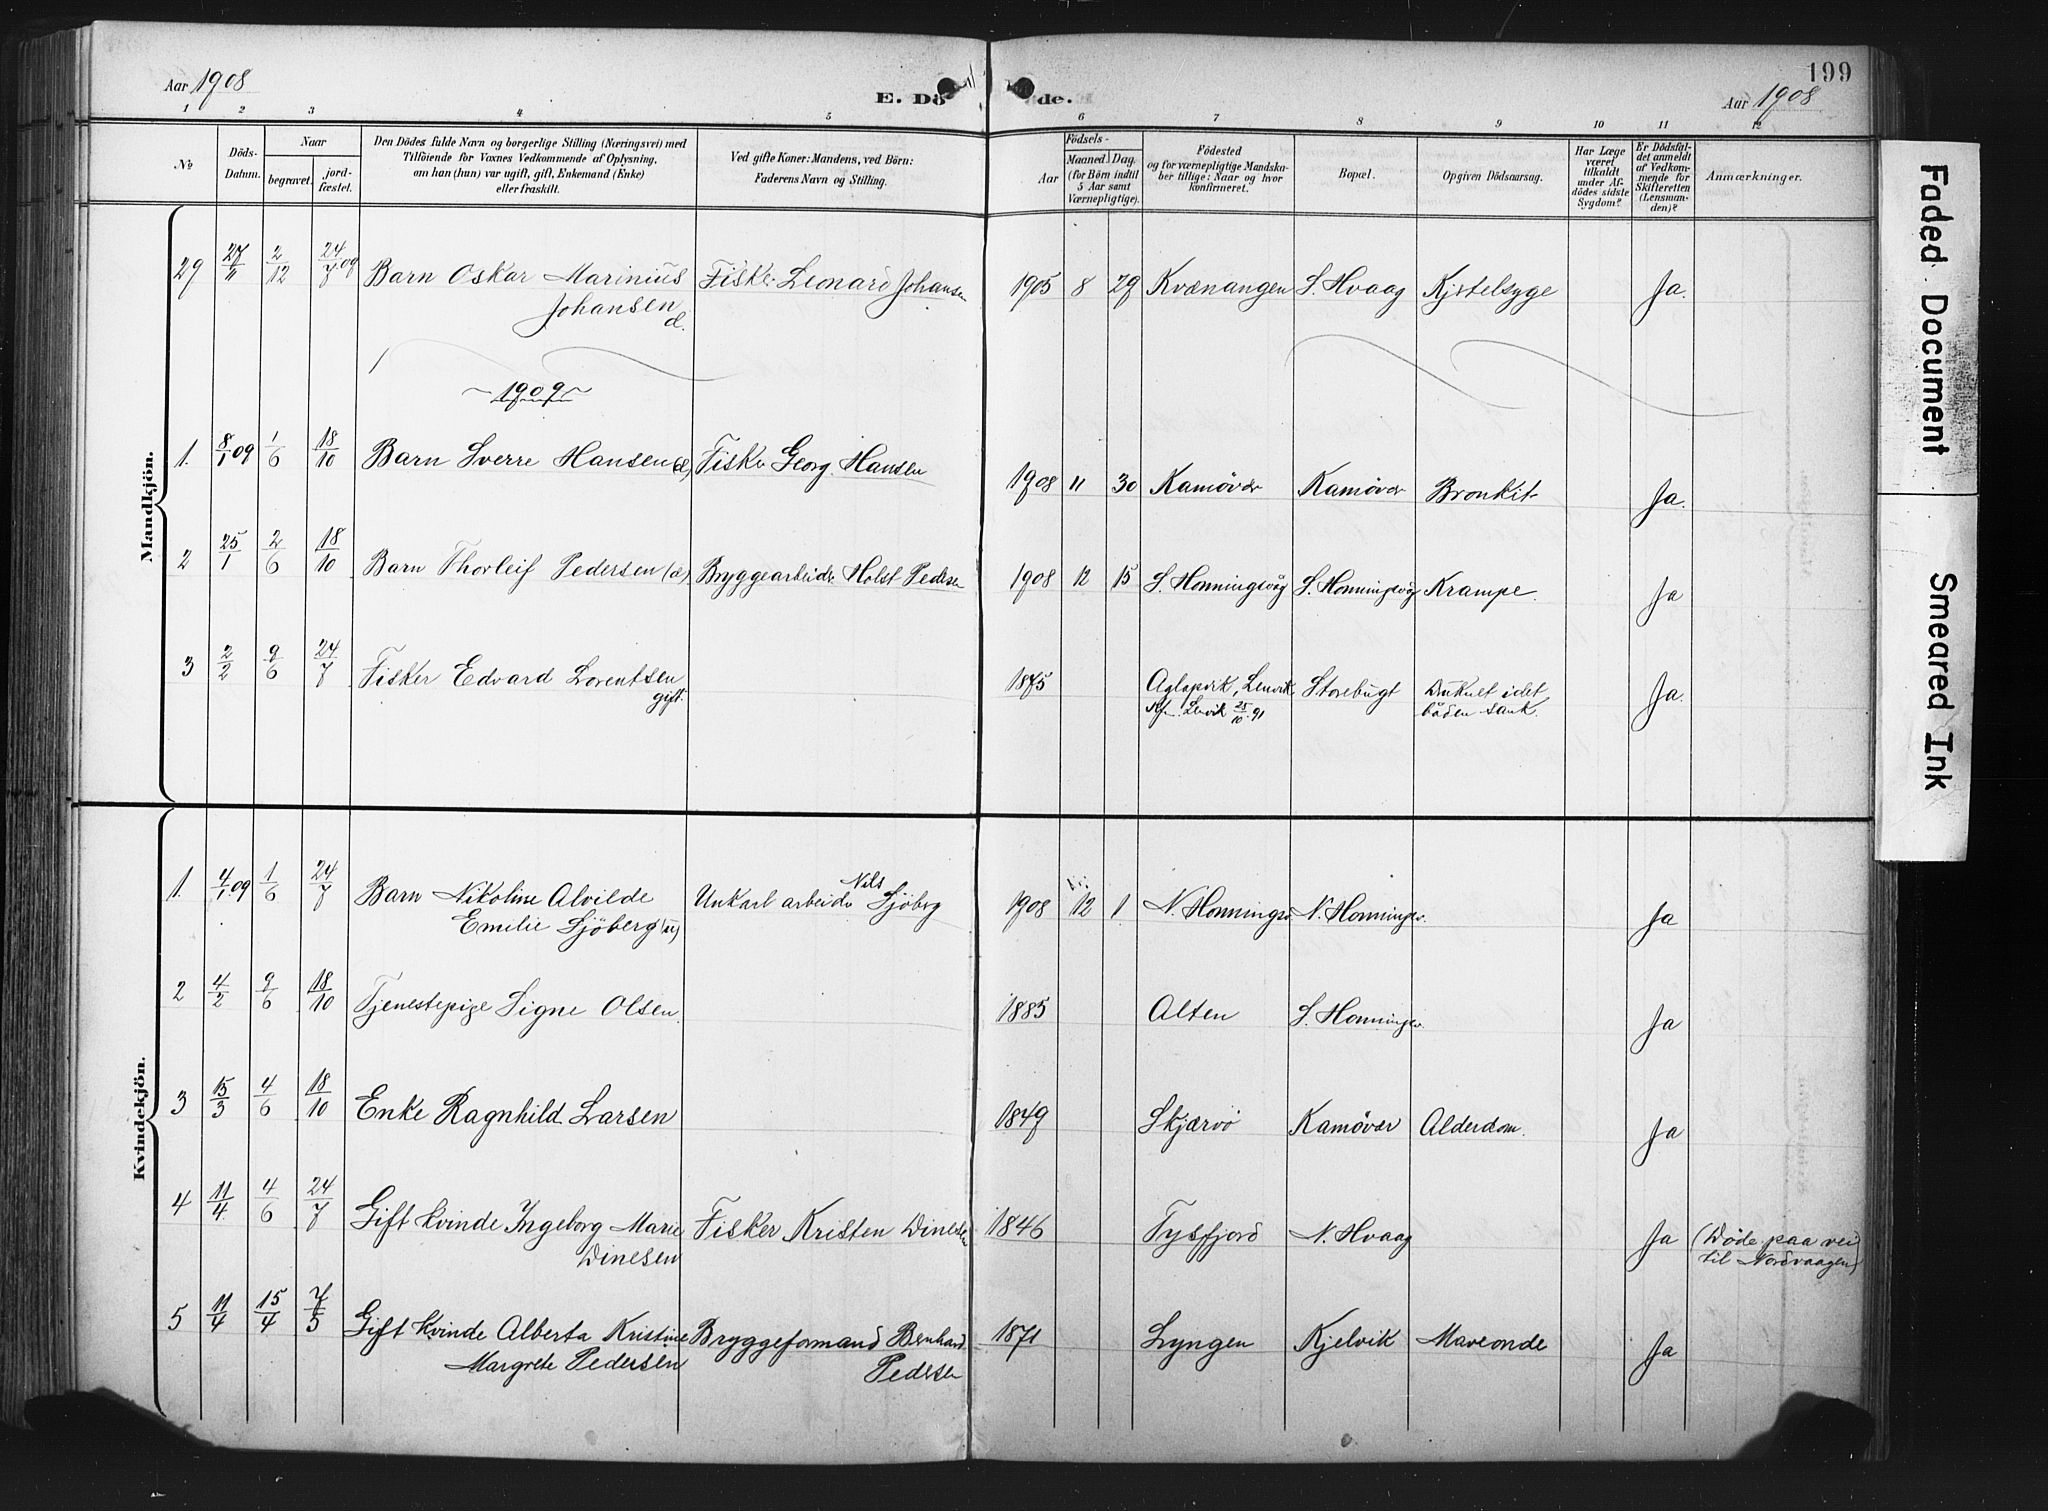 Aar 1908
E. Dö de.
199
Aar 1908
1 2 3 4 5 6 7 8 9 10 11 12
No
Döds-Datum.
Naar
begravet.
jord-fæstet.
Den Dödes fulde Navn og borgerlige Stilling (Næringsvei) med
Tilföiende for Voxnes Vedkommende af Oplysning,
om han (hun) var ugift, gift, Enkemand (Enke)
eller fraskilt.
Ved gifte Koner: Mandens, ved Börn:
Faderens Navn og Stilling.
Födsels-
Aar
Maaned. Dag.
(for Börn indtil
5 Aar samt
Værnepligtige).
Födested
og for værnepligtige Mandska-
ber tillige: Naar og hvor
konfirmeret.
Bopæl.
Opgiven Dödsaarsag.
Har Læge
været
tilkaldt
under Af-
dödes sidste
Sygdom?
Er Dödsfal-
det anmeldt
af Vedkom-
mende for
Skifteretten
(Lensman-
den)?
Anmærkninger.
Mandkjön.
29 27/11 2/12 24/7 09 Barn Oskar Marinius Fisker Leonard Johansen 1905 8 29 Kvænangen S. Hvaag Kjertelsyge Ja.
Johansen
d.
1909
1. 8/1 09 1/6 18/10 Barn Sverre Hansen (d) Fisker Georg Hansen 1908 11 30 Kamövær Kamövær Bronkit Ja.
2 25/1 2/6 18/10 Barn Thorleif Pedersen (d) Bryggearbeider Holst Pedersen 1908 12 15 S. Honningsvåg S. Honningsvåg Krampe. Ja
3 2/2 9/6 24/7 Fisker Edvard Lorentsen 1875 Aglapvik, Lenvik Storebugt Druknet idet Ja.
gift. Kf. Lenvik 25/10 91 båden sank.
Kvindekjön.
1. 4/1 09 1/6 24/7 Barn Nikoline Alvilde Unkarl arbeider Nils Sjöberg 1908 12 1. N. Honningsv. N. Honningsv. Ja
Emilie Sjöberg (u)
2 4/2 9/6 18/10 Tjenestepige Signe Olsen. 1885 Alten S. Honningsv. Ja
3 15/3 4/6 18/10 Enke Ragnhild Larsen 1849 Skjærvö Kamövær Alderdom. Ja
4 11/4 4/6 24/7 Gift kvinde Ingeborg Marie Fisker Kristen Dinesen 1846 Tysfjord N. Hvaag Ja (Döde paa vei
Dinesen til Nordvaagen)
5 11/4 15/4 7/5 Gift kvinde Alberta Kristine Bryggeformand Bernhard 1871 Lyngen Kjelvik Maveonde Ja
Margrete Pedersen Pedersen
Faded Document
Smeared Ink